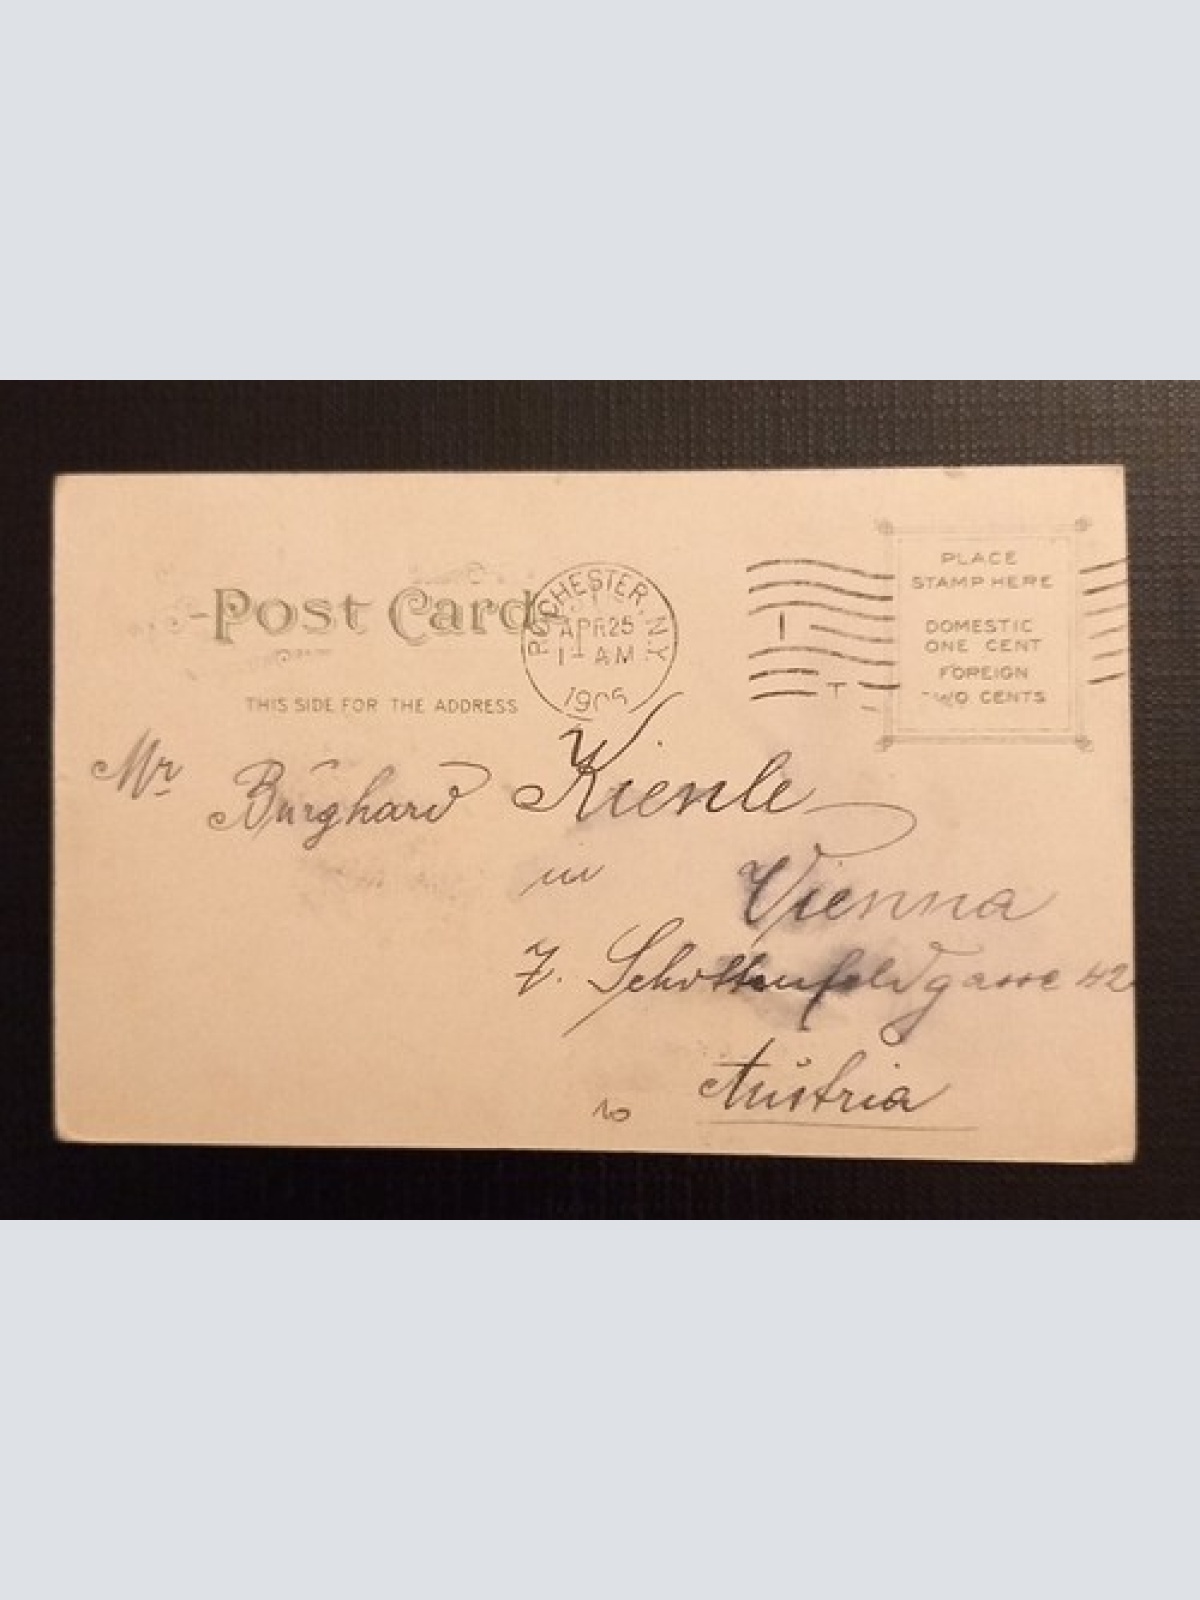 Post Card
THIS SIDE FOR THE ADDRESS
ROCHESTER, N.Y.
APR 25
1- AM
1906
PLACE
STAMP HERE
DOMESTIC
ONE CENT
FOREIGN
TWO CENTS
Mr Burghard Kienle
in Vienna
7. Schottenfeldgasse 42
Austria
10